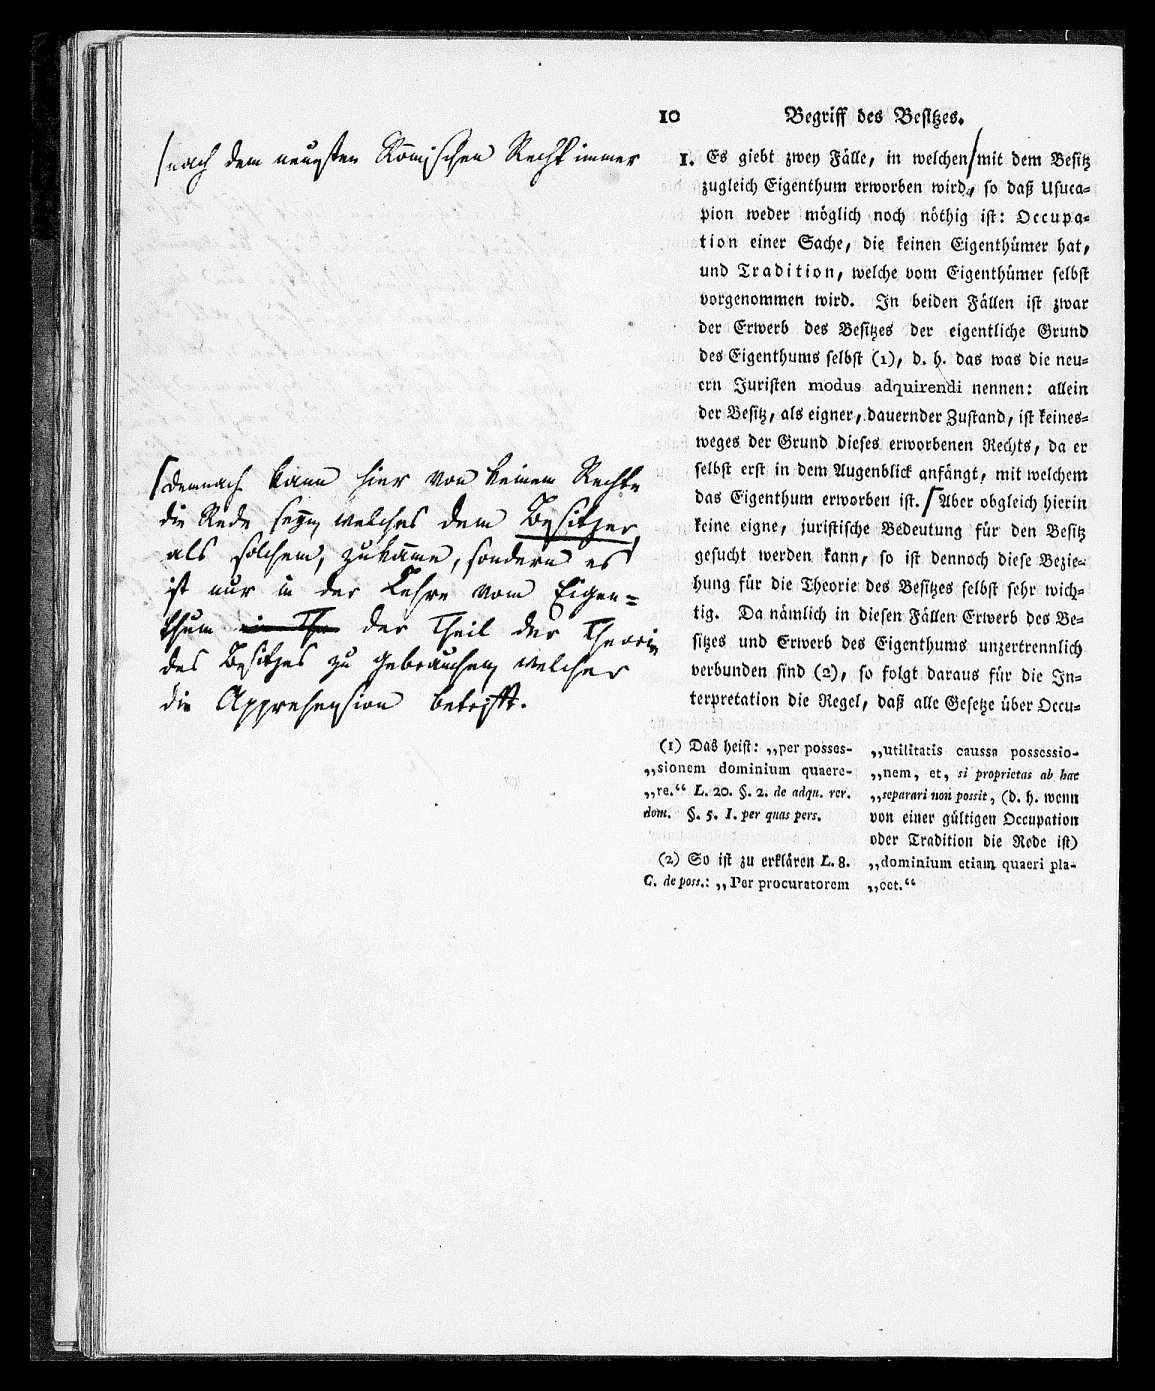 ⌈nach dem neuesten Römischen Recht immer
⌈demnach kann hier von keinem Rechte
die Rede seyn, welches dem Besitzer,
als solchem, zukäme, sondern es
ist nur in der Lehre vom Eigen=
thum in Th der Theil der Theorie
des Besitzes zu gebrauchen, welcher
die Apprehension betrifft.
10 Begriff des Besitzes.
1. Es giebt zwey Fälle, in welchen⌈mit dem Besitz
zugleich Eigenthum erworben wird, so daß Usuca=
pion weder möglich noch nöthig ist: Occupa=
tion einer Sache, die keinen Eigenthümer hat,
und Tradition, welche vom Eigenthümer selbst
vorgenommen wird. In beiden Fällen ist zwar
der Erwerb des Besitzes der eigentliche Grund
des Eigenthums selbst (1), d. h. das was die neu=
ern Juristen modus adquirendi nennen: allein
der Besitz, als eigner, dauernder Zustand, ist keines=
weges der Grund dieses erworbenen Rechts, da er
selbst erst in dem Augenblick anfängt, mit welchem
das Eigenthum erworben ist.⌈Aber obgleich hierin
keine eigne, juristische Bedeutung für den Besitz
gesucht werden kann, so ist dennoch diese Bezie=
hung für die Theorie des Besitzes selbst sehr wich=
tig. Da nämlich in diesen Fällen Erwerb des Be=
sitzes und Erwerb des Eigenthums unzertrennlich
verbunden sind (2), so folgt daraus für die In=
terpretation die Regel, daß alle Gesetze über Occu=
(1) Das heist: „per posses-
„sionem dominium quaere-
„re.“ L. 20. §. 2. de adqu. rer.
dom. §. 5. I. per quas pers.
(2) So ist zu erklären L. 8.
C. de poss.: „Per procuratorem
„utilitatis caussa possessio-
„nem, et, si proprietas ab hac
„separari non possit, (d. h. wenn
von einer gültigen Occupation
oder Tradition die Rede ist)
„dominium etiam quaeri pla-
„cet.“